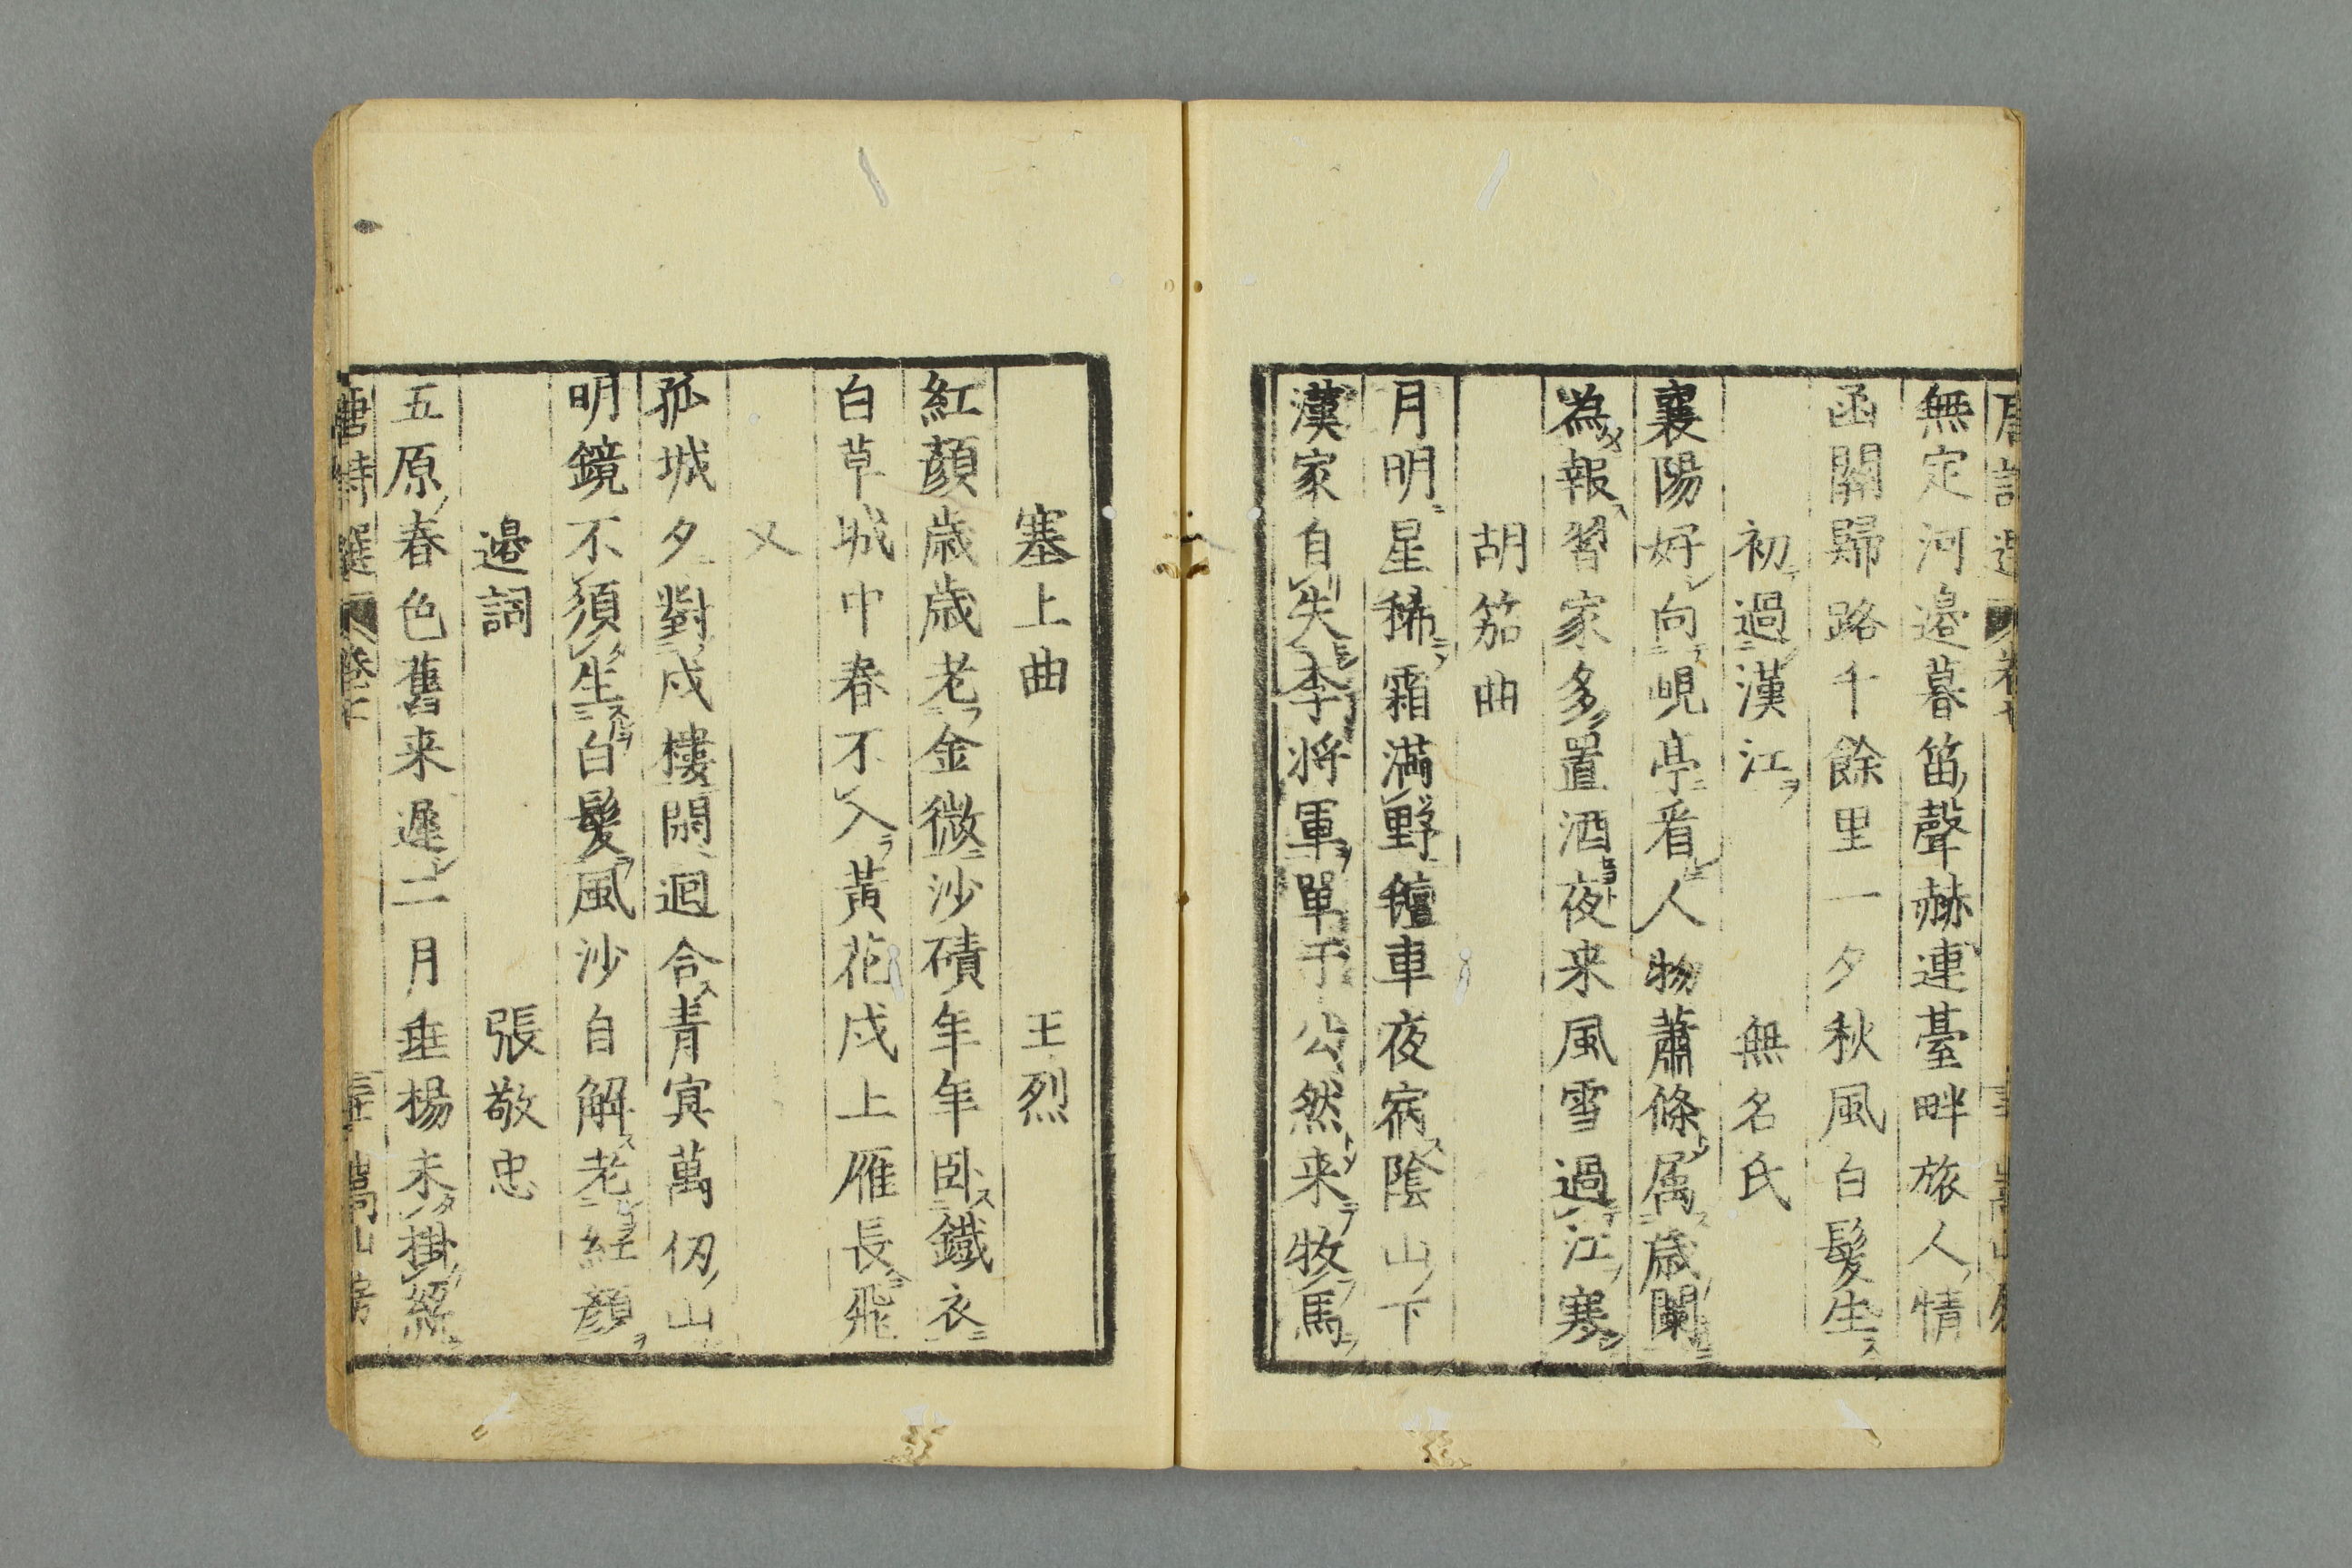 無定河邊暮笛聲赫連臺畔旅人情
函關歸路千餘里一夕秋風白髮生
初過漢江 無名氏
襄陽好向峴亭看人物蕭條属歳闌
為報習家多置酒夜来風雪過江寒
胡笳曲
月明星稀霜滿野氊車夜宿陰山下
漢家自失李將軍單于公然来牧馬
塞上曲 王烈
紅顏歳歳老金微沙磧年年卧鐵衣
白草城中春不入黃花戍上雁長飛
又
孤城夕對戍樓閑迴合青冥萬仞山
明鏡不須生白髮風沙自解老紅顏
邊詞 張敬忠
五原春色舊来遲二月垂楊未掛絲
唐詩選 卷七